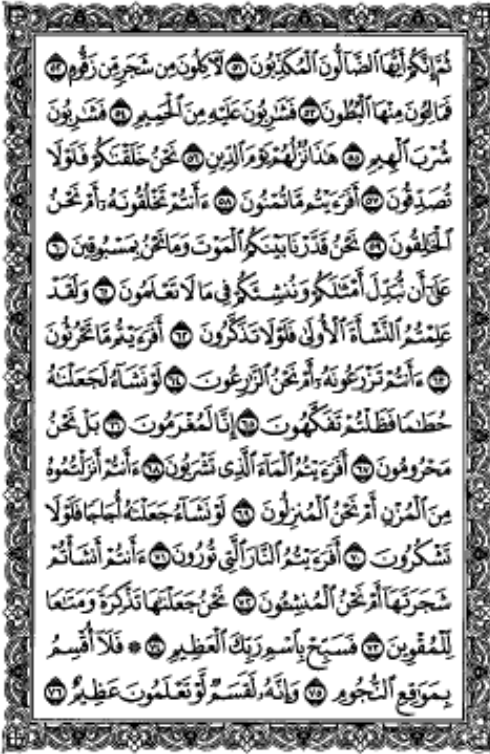 ثُمَّ إِنَّكُمْ أَيُّهَا ٱلضَّآلُّونَ ٱلْمُكَذِّبُونَ ٥١ لَأَكِلُونَ مِن شَجَرٍ مِّن زَقُّومٍ ٥٢
فَمَالِـُٔونَ مِنْهَا ٱلْبُطُونَ ٥٣ فَشَٰرِبُونَ عَلَيْهِ مِنَ ٱلْحَمِيمِ ٥٤ فَشَٰرِبُونَ
شُرْبَ ٱلْهِيمِ ٥٥ هَٰذَا نُزُلُهُمْ يَوْمَ ٱلدِّينِ ٥٦ نَحْنُ خَلَقْنَٰكُمْ فَلَوْلَا
تُصَدِّقُونَ ٥٧ أَفَرَءَيْتُم مَّا تُمْنُونَ ٥٨ ءَأَنتُمْ تَخْلُقُونَهُۥٓ أَمْ نَحْنُ
ٱلْخَٰلِقُونَ ٥٩ نَحْنُ قَدَّرْنَا بَيْنَكُمُ ٱلْمَوْتَ وَمَا نَحْنُ بِمَسْبُوقِينَ ٦٠
عَلَىٰٓ أَن نُّبَدِّلَ أَمْثَٰلَكُمْ وَنُنشِئَكُمْ فِى مَا لَا تَعْلَمُونَ ٦١ وَلَقَدْ
عَلِمْتُمُ ٱلنَّشْأَةَ ٱلْأُولَىٰ فَلَوْلَا تَذَكَّرُونَ ٦٢ أَفَرَءَيْتُم مَّا تَحْرُثُونَ
٦٣ ءَأَنتُمْ تَزْرَعُونَهُۥٓ أَمْ نَحْنُ ٱلزَّٰرِعُونَ ٦٤ لَوْ نَشَآءُ لَجَعَلْنَٰهُ
حُطَٰمًا فَظَلْتُمْ تَفَكَّهُونَ ٦٥ إِنَّا لَمُغْرَمُونَ ٦٦ بَلْ نَحْنُ
مَحْرُومُونَ ٦٧ أَفَرَءَيْتُمُ ٱلْمَآءَ ٱلَّذِى تَشْرَبُونَ ٦٨ ءَأَنتُمْ أَنزَلْتُمُوهُ
مِنَ ٱلْمُزْنِ أَمْ نَحْنُ ٱلْمُنزِلُونَ ٦٩ لَوْ نَشَآءُ جَعَلْنَٰهُ أُجَاجًا فَلَوْلَا
تَشْكُرُونَ ٧٠ أَفَرَءَيْتُمُ ٱلنَّارَ ٱلَّتِى تُورُونَ ٧١ ءَأَنتُمْ أَنشَأْتُمْ
شَجَرَتَهَآ أَمْ نَحْنُ ٱلْمُنشِـُٔونَ ٧٢ نَحْنُ جَعَلْنَٰهَا تَذْكِرَةً وَمَتَٰعًا
لِّلْمُقْوِينَ ٧٣ فَسَبِّحْ بِٱسْمِ رَبِّكَ ٱلْعَظِيمِ ٧٤ ۞ فَلَآ أُقْسِمُ
بِمَوَٰقِعِ ٱلنُّجُومِ ٧٥ وَإِنَّهُۥ لَقَسَمٌ لَّوْ تَعْلَمُونَ عَظِيمٌ ٧٦